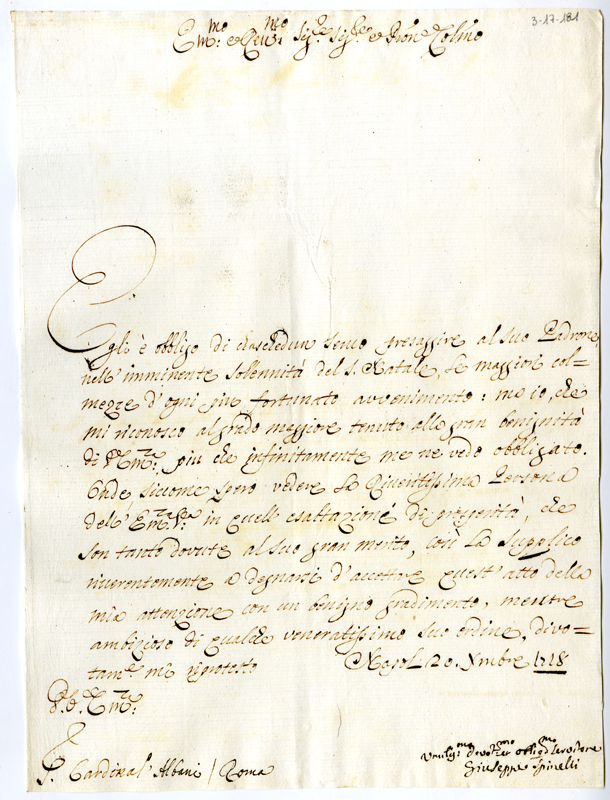 3-17-181
E.mo e Rev.mo Sig.re Sig.re e Pron.e Colmo
Egli è obbligo di ciaschedun servo presaggire al suo Padrone
nell' imminente solennità del S. Natale, le maggiori col=
mezze d'ogni più fortunato avvenimento: ma io, che
mi riconosco al grado maggiore tenuto alla gran benignità
di V. Em.za più che infinitamente me ne vedo obbligato.
Onde siccome spero vedere la Riveritissima Persona
dell' Em.za V.ra in quell' esaltazione di prosperità, che
son tanto dovute al suo gran merito, così La Supplico
riverentemente a degnarsi d'accettare quest' atto della
mia attenzione con un benigno gradimento, mentre
ambizioso di qualche veneratissimo suo ordine, divo=
tam.e mi riprotesto Napoli 20. Xmbre 1718
D. V. Em.za
S. Cardinal Albani / Roma
Umilis.mo devotis.mo obblig.mo Servitore
Giuseppe Spinelli